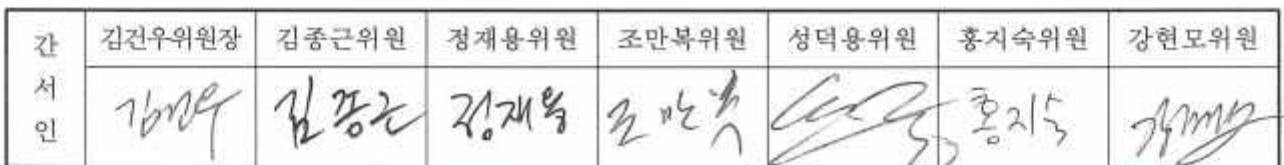 간서인
김건우위원장 김종근위원 정재용위원 조만복위원 성덕용위원 홍지숙위원 강현모위원
김건우 김종근 정재용 조만복 홍지숙